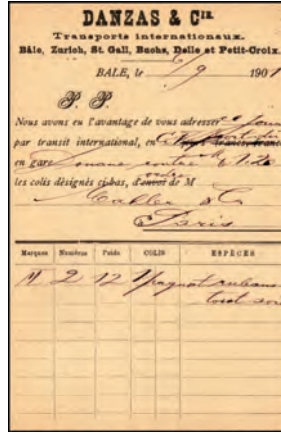 DANZAS & Cie.
Transports internationaux.
Bâle, Zurich, St. Gall, Buchs, Delle et Petit-Croix.
BALE, le 6/9 1901
P. P.
Nous avons eu l'avantage de vous adresser ce jour
par transit international, en
en gare Douane contre
les colis désignés ci-bas, d'envoi de M
ordre
Mahler & Co
Paris
Marques Numéros Poids COLIS ESPÈCES
M 2 12 1 paquet rubans
tout soie